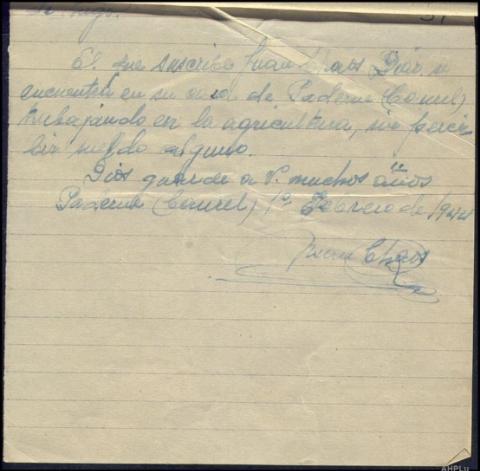 El que suscribe Juan Chaos Diaz se
encuentra en su casa de Paderne (Caurel)
trabajando en la agricultura, sin perci
bir sueldo alguno.
Dios guarde a V. muchos años
Paderne (Caurel) 1º Febrero de 1944
Juan Chaos
AHPLu